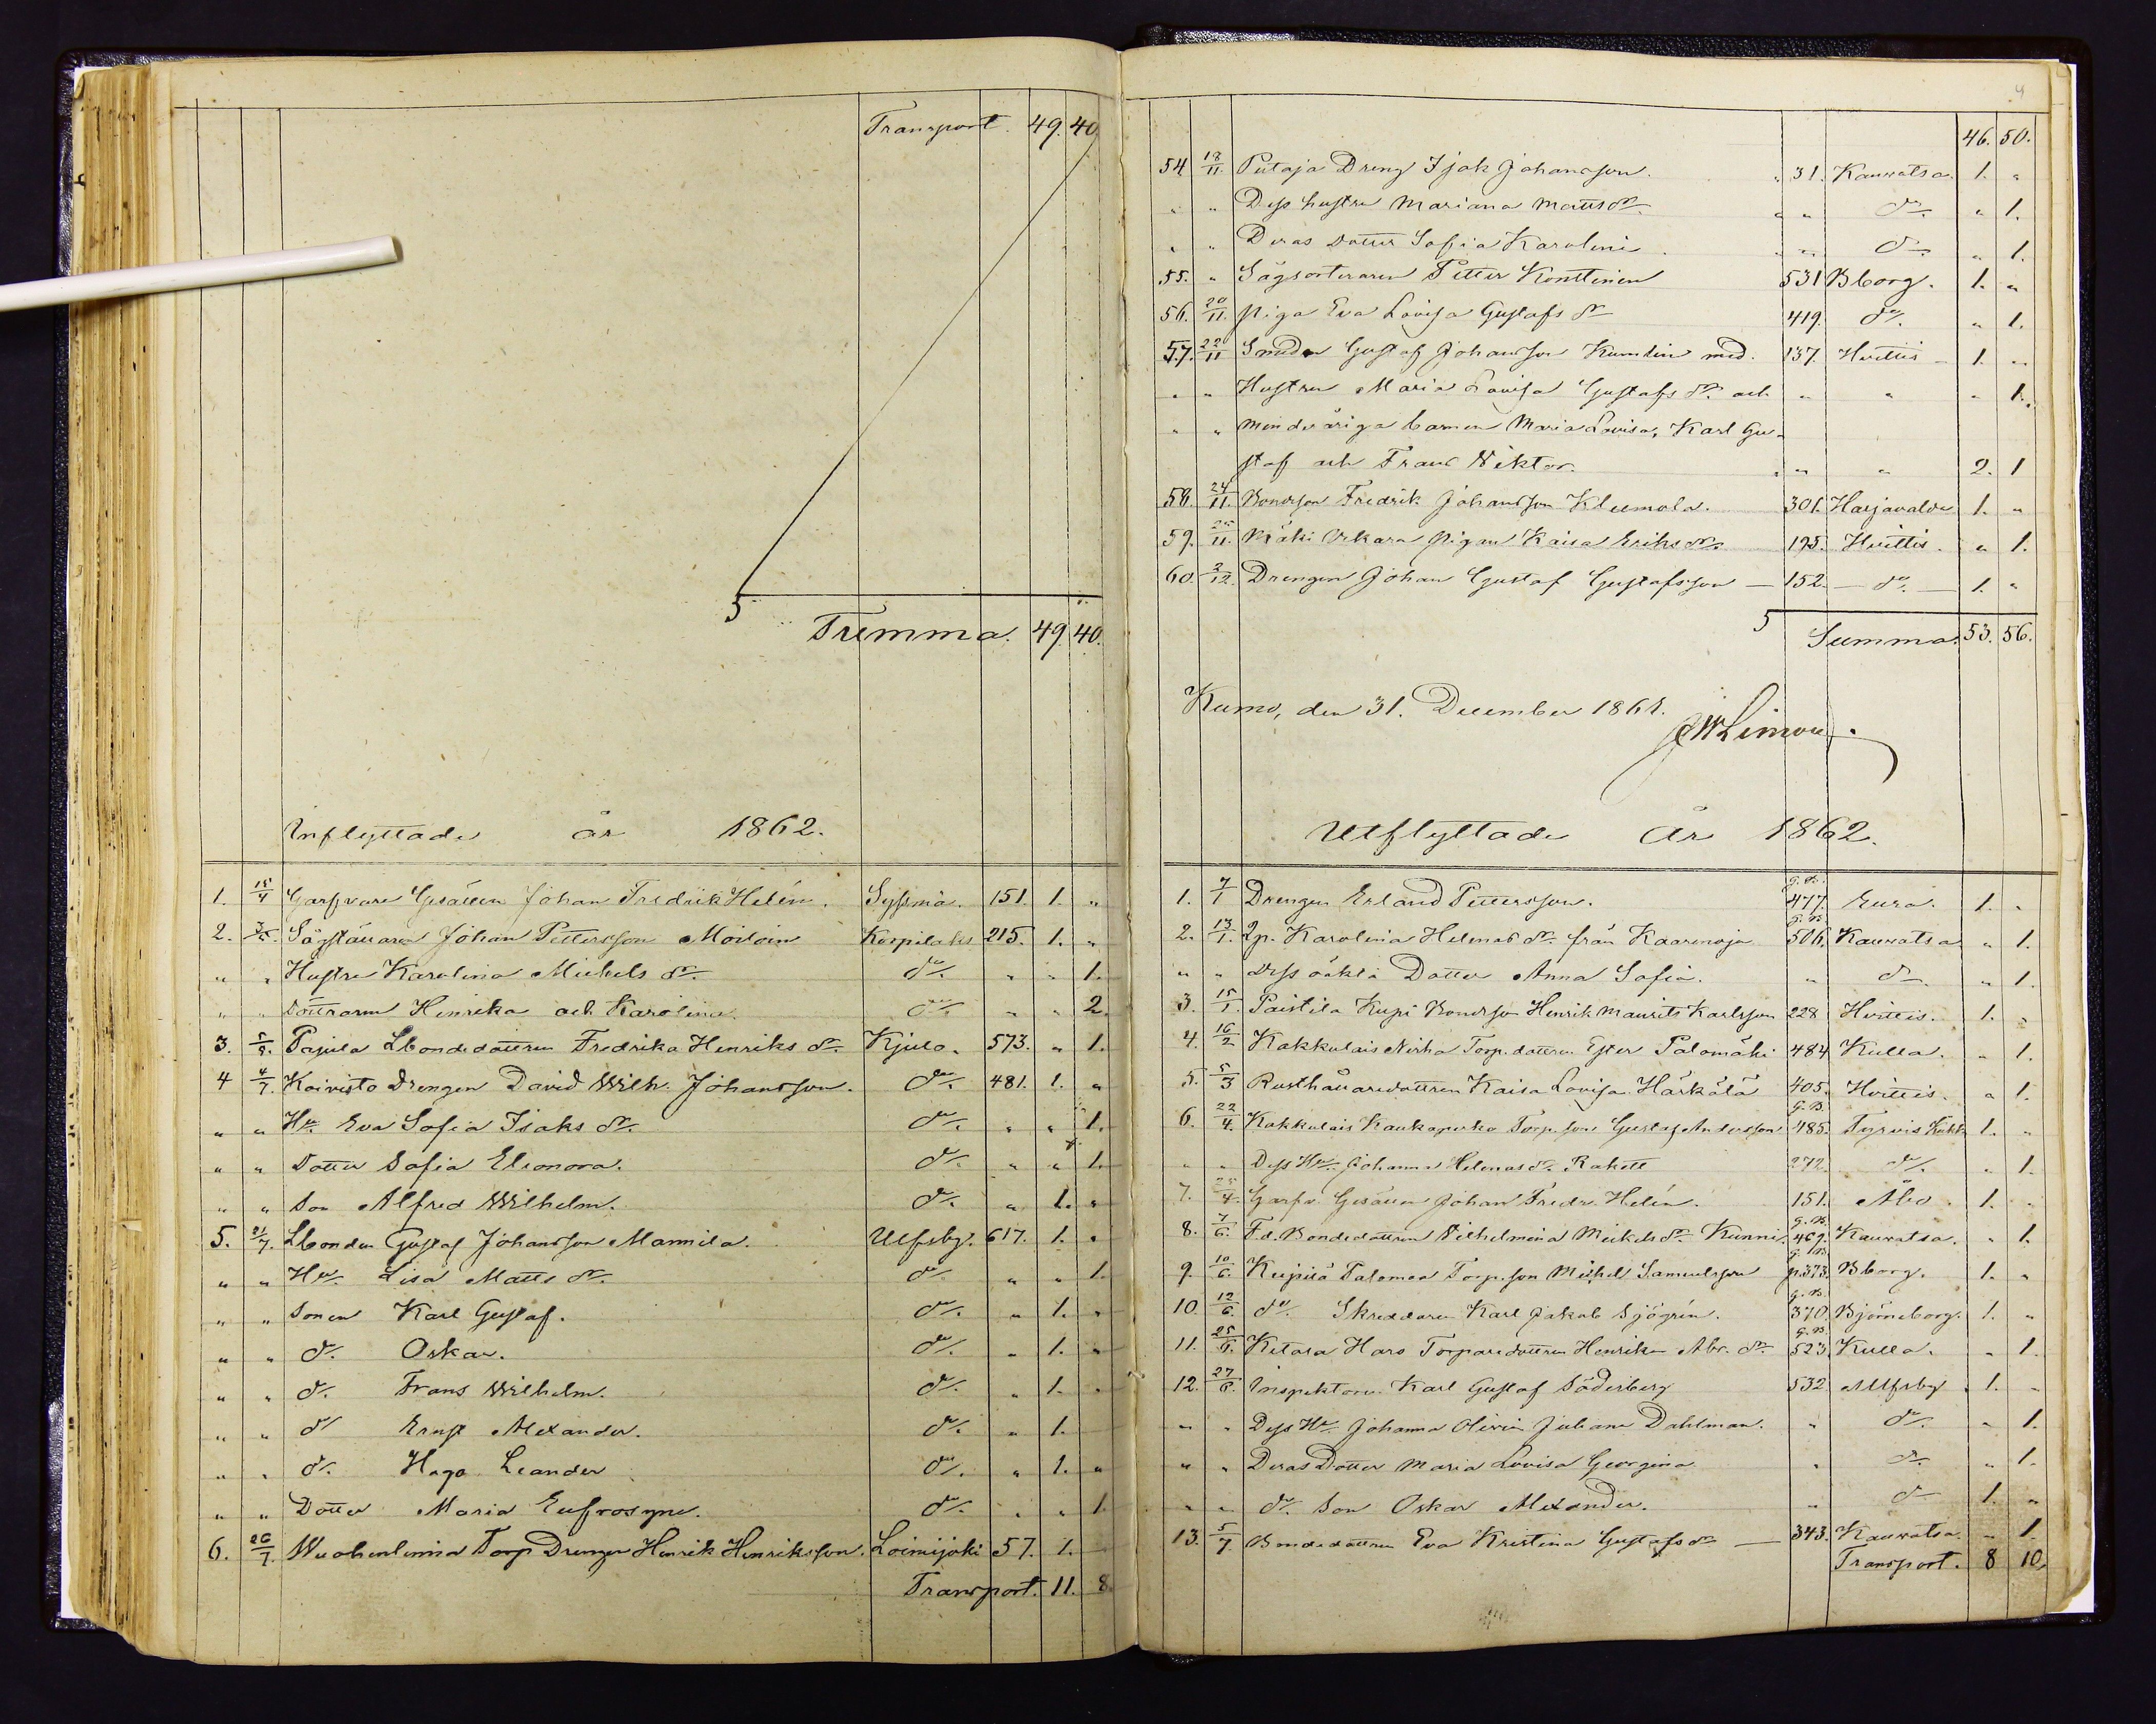 Transport. 49. 40.
Summa. 49. 40.
Inflyttade år 1862.
1. 15/4 Garfvare Gesällen Johan Fredrik Helén. Syssmä. 151. 1. "
2. Sågställaren Johan Pettersson Moiloin Korpilaks 215. 1. "
" " Hustru Karolina Michels dr. do. " " 1.
" " Döttrarne Henrika och Karolina. do. " " 2.
3. 5/5. Pajula Lbondedottren Fredrika Henriks dr. Kjulo. 573. " 1.
4 4/7. Koivisto Drengen David Wilh. Johansson. do. 481. 1. "
" " Hu. Eva Sofia Isaks dr. do. " " 1.
" " Dotter Sofia Eleonora. do. " " 1.
" " Son Alfred Wilhelm. do. " 1. "
5. 21/7. Lbonden Gustaf Johansson Mannila. Ulfsby. 617. 1. "
" " Hu. Lisa Matts dr. do. " " 1
" " Sonen Karl Gustaf. do. " 1. "
" " do. Oskar. do. " 1. "
" " do. Frans Wilhelm. do. " 1. "
" " do Ernst Alexander. do. " 1.
" " do. Hugo Leander do. " 1. "
" " Dotter Maria Eufrosyne. do. " " 1
6. 26/7. Wuohenlinna Torp Drengen Henrik Henriksson. Loimijoki 57. 1.
Transport. 11. 8.
4
46. 50.
54 18/11. Pútaja Dreng Isak Johansson. " 31. Kauvatsa. 1. "
" " Dess hustru Mariana Matts dr. " " do. " 1.
" " Deras dotter Sofia Karolina " " do. " 1.
55. " Sågsorteraren Petter Konttinen 531 Bborg. 1. "
56. 20/11. Piga Eva Lovisa Gustafs dr 419. do. " 1.
57. 22/11 Smeden Gustaf Johansson Kumlin med. 137. Huittis 1. "
" " Hustru Maria Lovisa Gustafs dr. och " " " 1.
" " minderåriga barnen Maria Lovisa, Karl Gu-
staf och Frans Wiktor. " " " 2. 1
58. 24/11. Bondeson Fredrik Johansson Kleemola. 301. Harjavalda 1. "
59. 25/11. Mäki Pigan Kaisa Eriks dr. 195. Huittis. " 1.
60. 2/12. Drengen Johan Gustaf Gustafsson — 152. — do. — 1. "
Summa. 53. 56.
Kumo, den 31. December 1861.
Utflyttade År 1862.
1. 7/1 Drengen Erland Pettersson. G.B. 477. Eura. 1. "
2. 13/1. Qp. Karolina Helenas dr. från Kaarenoja G.B. 506. Kauvatsa " 1.
" " Dess oäkta Dotter Anna Sofia. " do. " 1.
3. 15/1. Paistila Kupi Bondeson Henrik Maurits Karlsson 228 Huittis. 1. "
4. 16/2 Kakkulais Torp. dottren Ester Palomäki 484 Kulla. " 1.
5. 5/3 Rusthållaredottren Kaisa Lovisa Härkälä 405. Huittis. " 1.
6. 22/4. Kakkulais Kaukaperko Torp. son Gustaf Andersson G.B. 485. Tyrvis 1. "
" " Dess Hu. Johanna Helenas dr. Rakett 272. do. " 1.
7. 25/4. Garfv. Gesällen Johan Fredr. Helén. 151. Åbo 1. "
8. 7/6. Fd. Bondedottren Vilhelmina Mickels dr. Kunni. G.B. 469. Kauvatsa. " 1.
9. 10/6. Keipilä Salomaa Torp. son Michel Samuelsson G.B. p. 373. Bborg. 1. "
10. 12/6. do. Skreddaren Karl Jakob Sjögrén. G.B. 370. Björneborg. 1. "
11. 25/6. Ketara Haro Torparedottren Henrika Abr. dr. G.B. 523. Kulla. " 1.
12. 27/6. Inspektoren Karl Gustaf Söderberg 532 Ulfsby. 1. "
" " Dess Hu. Johanna Olivia Juliana Dahlman. " do. " 1.
" " Deras Dotter Maria Lovisa Georgina " do. " 1.
" " do. Son Oskar Alexander. " do 1. "
13. 5/7. Bondedottren Eva Kristina Gustafs dr — 343. Kauvatsa " 1.
Transport. 8 10.